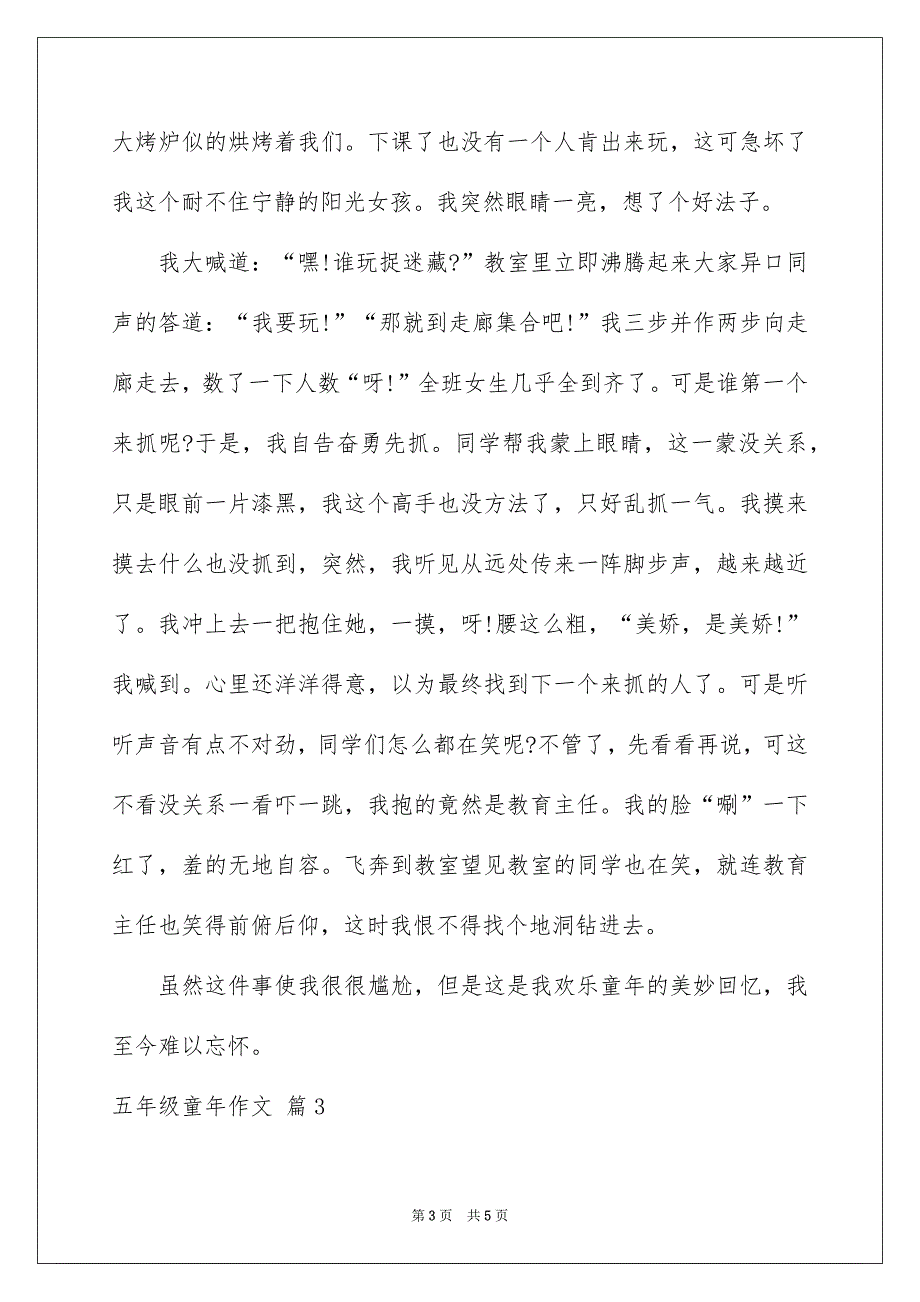 大烤炉似的烘烤着我们。下课了也没有一个人肯出来玩，这可急坏了
我这个耐不住宁静的阳光女孩。我突然眼睛一亮，想了个好法子。
我大喊道：“嘿!谁玩捉迷藏?”教室里立即沸腾起来大家异口同
声的答道：“我要玩!”“那就到走廊集合吧!”我三步并作两步向走
廊走去，数了一下人数“呀!”全班女生几乎全到齐了。可是谁第一个
来抓呢?于是，我自告奋勇先抓。同学帮我蒙上眼睛，这一蒙没关系，
只是眼前一片漆黑，我这个高手也没方法了，只好乱抓一气。我摸来
摸去什么也没抓到，突然，我听见从远处传来一阵脚步声，越来越近
了。我冲上去一把抱住她，一摸，呀!腰这么粗，“美娇，是美娇!”
我喊到。心里还洋洋得意，以为最终找到下一个来抓的人了。可是听
听声音有点不对劲，同学们怎么都在笑呢?不管了，先看看再说，可这
不看没关系一看吓一跳，我抱的竟然是教育主任。我的脸“唰”一下
红了，羞的无地自容。飞奔到教室望见教室的同学也在笑，就连教育
主任也笑得前俯后仰，这时我恨不得找个地洞钻进去。
虽然这件事使我很很尴尬，但是这是我欢乐童年的美妙回忆，我
至今难以忘怀。
五年级童年作文 篇3
第3页 共5页